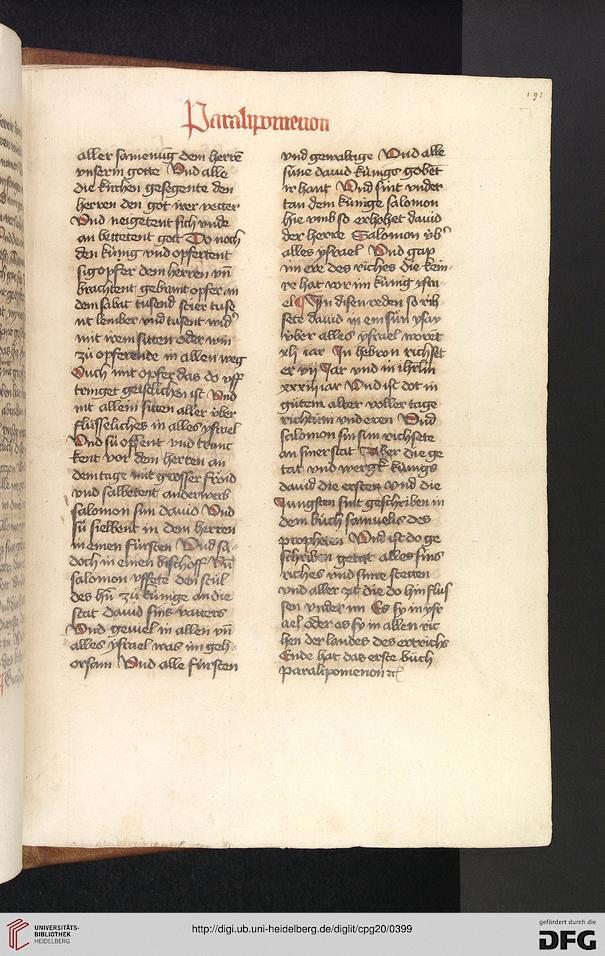 197
Paralipomenon
aller samenu̅g dem herre̅
vnserm gotte Vnd alle
die kirchen gesegente den
herren den got irer vetter
Vnd neigetent sich vnde
an bettetent got Do noch
den kúnig vnd opfertent
sigopfer dem herren vn̅
brachtent gebrant opfer an
dem sabat tusend stier tuse
nt lember vnd tusent wid'
mit iren sitten oder win
zů opferende in allen weg
Ouch mit opfer das do vff
tringet geiselichen ist Vnd
mit allem sitten aller úber
flússeliches in alles ysrael
Vnd sú ossent vnd trunc
kent vor dem herren an
dem tage mit grosser fröid
vnd salbetent anderwerb
salomon sun dauid Vnd
sú sielbent in dem herren
in einen fúrsten Vnd sa-
doch in einen bischoff Vn̅
salomon vffete den stůl
des h̅n zů kúnige an die
stat dauid sins vatters
Vnd geuiel in allen vn̅
alles ysrael was im geh-
orsam Vnd alle fúrsten
vnd gewaltige Vnd alle
súne dauid kúnigs gobet
ir hant Vnd sint vnder
tan dem kúnige salomon
hie vmb so erhohet dauid
der herre Salomon úb'
alles ysrael Vnd gap
im ere des riches die kein-
re hat vor im kúnig ysra-
el In disen reden so rih
sete dauid in ein sún ysay
úber alles ysrael worent
xlij iar In hebron richset
er vij Jar vnd in ihrl̅m
xxxiij iar Vnd ist dot in
gůtem alter voller tage
richtům vnd eren Vnd
salomon sin sun richsete
an siner stat Aber die ge
tat vnd werg kúnigs
dauid die ersten vnd die
Jungsten sint geschriben in
dem bůch samuelis des
propheten Vnd ist do ge
schriben getat alles sins
riches vnd sinre stercken
vnd aller zit die do hin flus
sen vnder im Es sy in ysr
ael oder es sy in allen ric
hen der landes des ertrichs
Ende hat das erste bůch
paralipomenon ꝛc
UNIVERSITÄTS-
BIBLIOTHEK
HEIDELBERG
http://digi.ub.uni-heidelberg.de/diglit/cpg20/0399
gefördert durch die
DFG